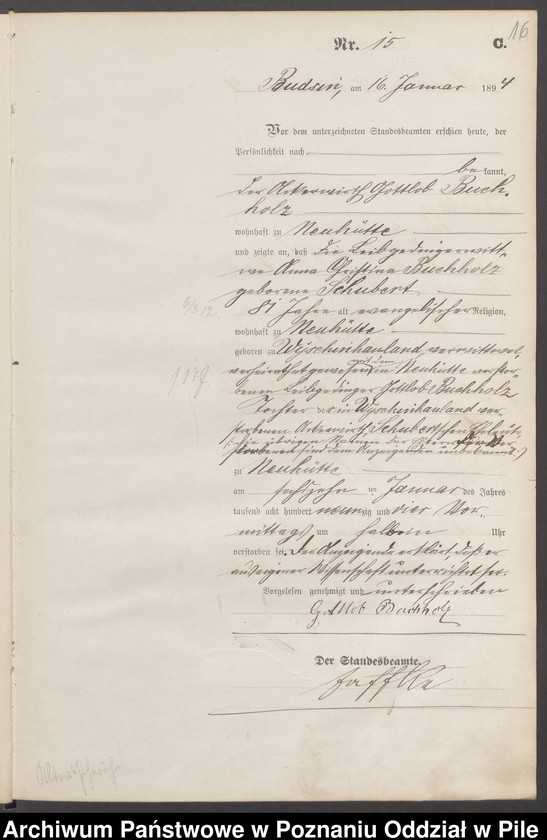 16
Nr. 15 C.
Budsin, am 16. Januar 1894
Vor dem unterzeichneten Standesbeamten erschien heute, der
Persönlichkeit nach
be kannt,
der Ackerwirth Gottlob Buch-
holz
wohnhaft zu Neuhütte
und zeigte an, daß die Leibgedingerwitt-
we Anna Christina Buchholz
geborene Schubert
81 Jahre alt, evangelischer Religion,
wohnhaft zu Neuhütte
geboren zu Wyschinhauland, verwittwet,
verheirathet gewesen mit dem in Neuhütte verstor-
benen Leibgedinger Gottlob Buchholz
Tochter der in Wyschinhauland ver-
storbenen Ackerwirth Schubert'schen Eheleute
(: die übrigen Namen der Eltern der Ver-
storbenen sind dem Anzeigenden unbekannt :)
zu Neuhütte
am sechszehn ten Januar des Jahres
tausend acht hundert neunzig und vier Vor-
mittags um halb ein Uhr
verstorben sei. Der Anzeigende erklärt, daß er
aus eigener Wissenschaft unterrichtet sei.
Vorgelesen, genehmigt und unterschrieben
Gottlob Buchholz
Der Standesbeamte.
Archiwum Państwowe w Poznaniu Oddział w Pile